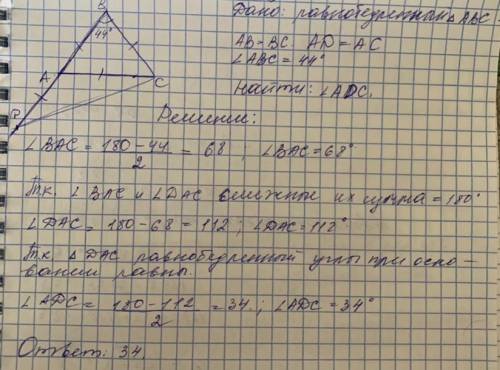 B
44°
A
C
D
Дано: равнобедренный △ABC
AB=BC AD=AC
∠ABC=44°
Найти: ∠ADC.
Решение:
∠BAC = 180-44 / 2 = 68 ; ∠BAC=68°
Т.к. ∠BAC и ∠DAC смежные их сумма = 180°
∠DAC= 180-68=112 ; ∠DAC=112°
Т.к. △DAC равнобедренный углы при осно-
вании равны.
∠ADC= 180-112 / 2 =34 ; ∠ADC=34°
Ответ: 34.